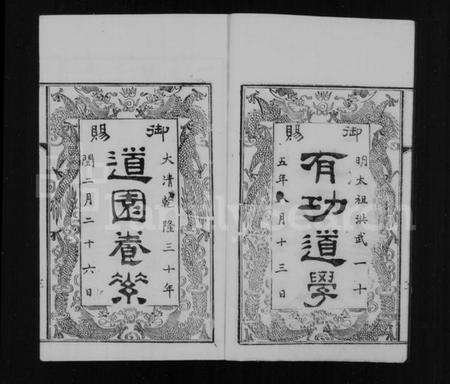 御賜
明太祖洪武一十
有功道學
五年八月十三日
御賜
大清乾隆三十年
道園眷縈
閏二月二十六日